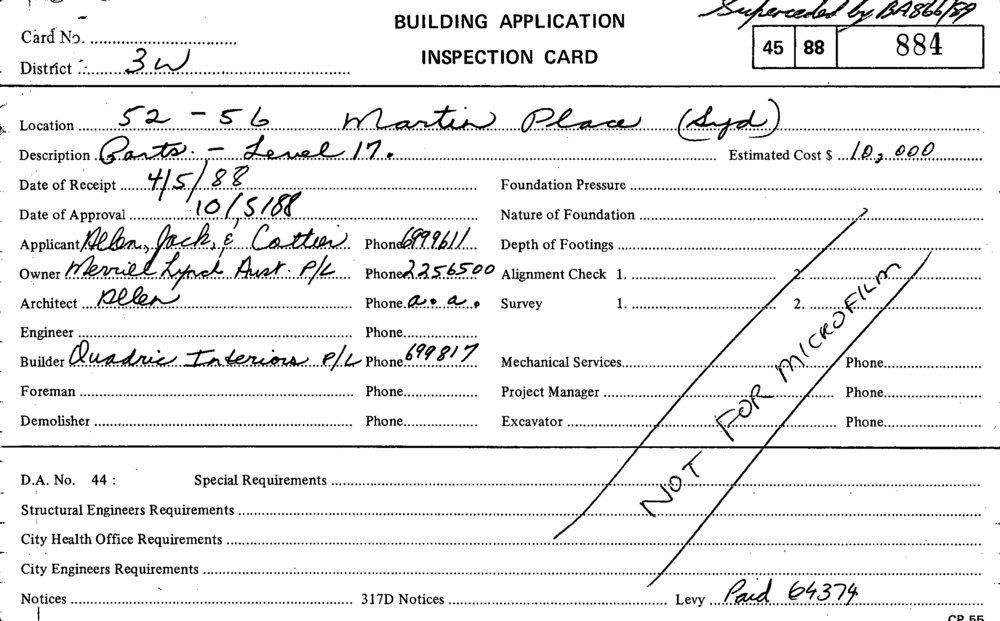 Superceded by BA866/89
BUILDING APPLICATION
INSPECTION CARD
45 88 884
Card No.
District 3W
Location 52 - 56 Martin Place (Syd)
Description Parts. - Level 17. Estimated Cost $ 10,000
Date of Receipt 4/5/88 Foundation Pressure
Date of Approval 10/5/88 Nature of Foundation
Applicant Allen, Jack, & Cottier Phone 6999611 Depth of Footings
Owner Merrill Lynch Aust. P/L Phone 2256500 Alignment Check 1. 2.
Architect Allen Phone a.a. Survey 1. 2.
Engineer Phone
Builder Quadric Interiors P/L Phone 699817 Mechanical Services Phone
Foreman Phone Project Manager Phone
Demolisher Phone Excavator Phone
NOT FOR MICROFILM
D.A. No. 44 : Special Requirements
Structural Engineers Requirements
City Health Office Requirements
City Engineers Requirements
Notices 317D Notices Levy Paid 64374
CP 55